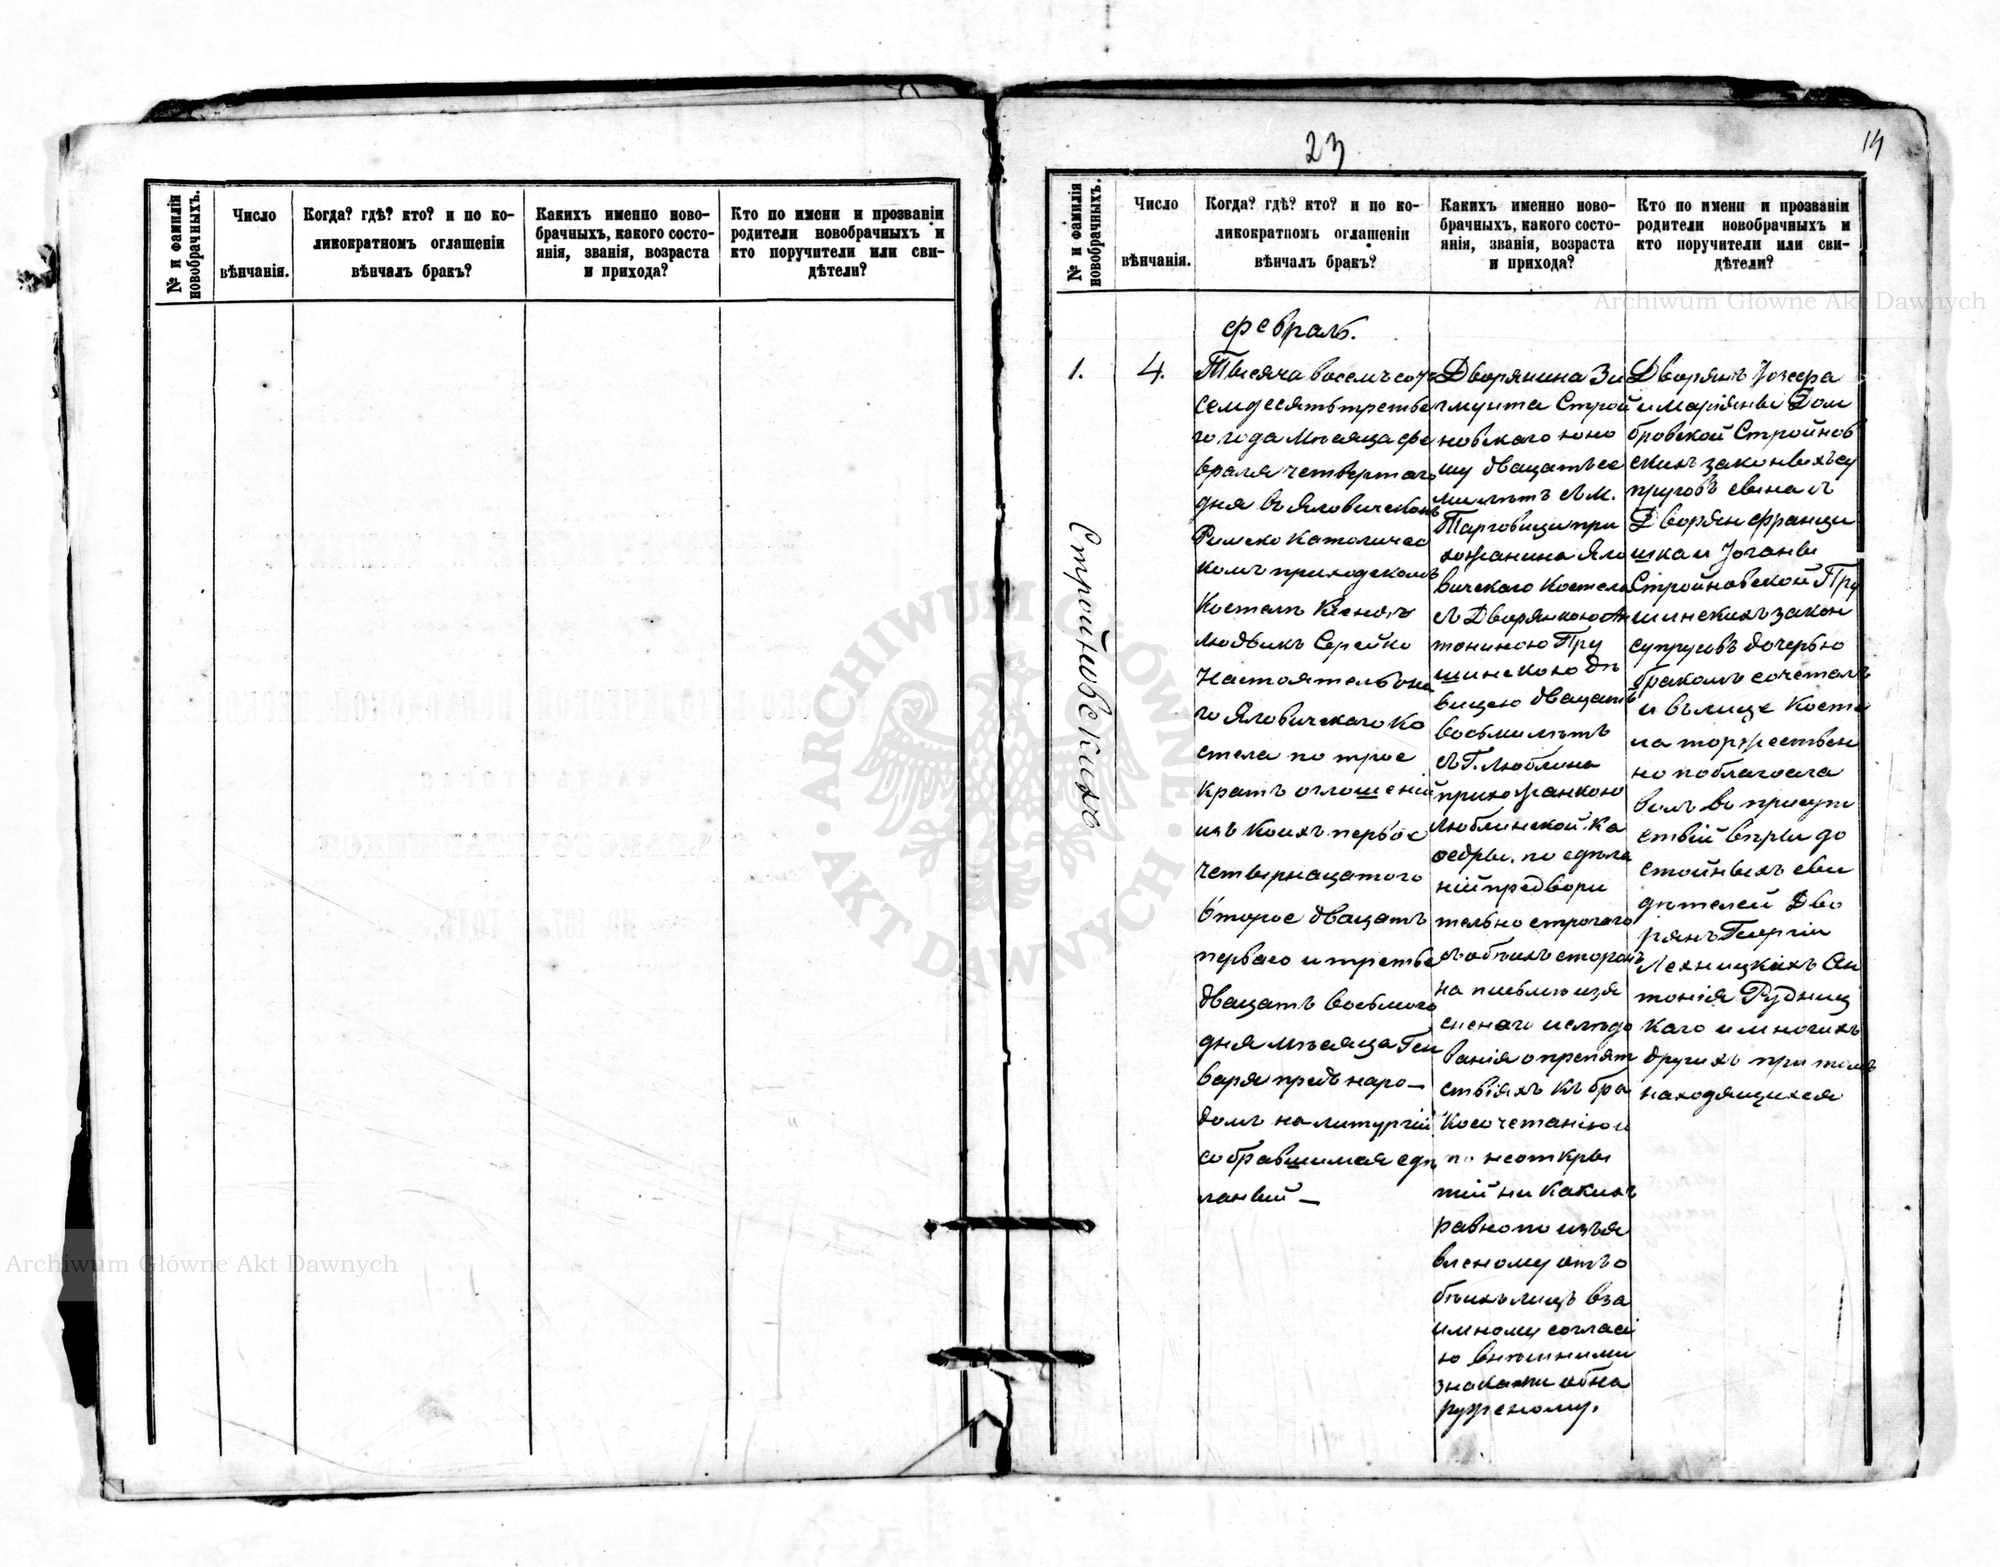 № и фамилія новобрачныхъ.
Число вѣнчанія.
Когда? гдѣ? кто? и по ко-
ликократномъ оглашеніи
вѣнчалъ бракъ?
Какихъ именно ново-
брачныхъ, какого состо-
янія, званія, возраста
и прихода?
Кто по имени и прозванію
родители новобрачныхъ и
кто поручители или сви-
дѣтели?
23
14
№ и фамилія новобрачныхъ.
Число
вѣнчанія.
Когда? гдѣ? кто? и по ко-
ликократномъ оглашеніи
вѣнчалъ бракъ?
Какихъ именно ново-
брачныхъ, какого состо-
янія, званія, возраста
и прихода?
Кто по имени и прозванію
родители новобрачныхъ и
кто поручители или сви-
дѣтели?
1.
Стройновскихъ
4.
февраль.
Тысяча восемьсотъ
семдесятьтретья
го года мѣсяца фе
враля четвертаго
дня въ Яловическомъ
Римско Католичес
комъ приходскомъ
Костелѣ Ксендзъ
Людвикъ Серейко
Настоятель она
го Яловичскаго Ко
стела по трое
кратъ оглошеніи
изъ коихъ первое
четвернацатого
второе двацать
перваго и третье
двацать восьмого
дня мѣсяца Ген
варя предъ наро-
домъ на литургіи
собравшимся сдѣ
ланный—
Дворянина Зи
гмунта Строй
новскаго юно
шу двацатьсе
ми лѣтъ съ м.
Торговици при
хожанина Яло
вичскаго Костела
съ Дворянкою Ан
тониною Пру
шинскою дѣ
вицею двацать
восьмилѣтъ
съ Г. Люблина
прихожанкою
Люблинской Ка
ѳедры, по сдѣла
ній предвори
тельно строгаго
съ обѣихъ сторонъ
на письмѣ изъя
сненаго изслѣдо
ванія о препят
ствіяхъ къ бра
косочетанію и
по неоткры
тій ни какихъ
равно по изъя
вленому отъ о
бѣихъ лицъ вза
имному согласі
ю внѣшними
знаками обна
руженому.
Дворянъ Іозефа
и Маріянны Дом
бровской Стройнов
скихъ законныхъ су
пруговъ сына съ
Дворян Франци
шка и Іоганны
Стройновской Пру
шинскихъ закон
супруговъ дочерью
бракомъ сочеталъ
и въ лице Косте
ла торжествен
но поблагосла
вилъ въ присут
ствій вѣры до
стойныхъ сви
дѣтелей Дво
рянъ Георгія
Лехницкихъ Ан
тонія Рудниц
каго и многихъ
другихъ при томъ
находящихся
ARCHIWUM GŁÓWNE
AKT DAWNYCH
Archiwum Główne Akt Dawnych
Archiwum Główne Akt Dawnych